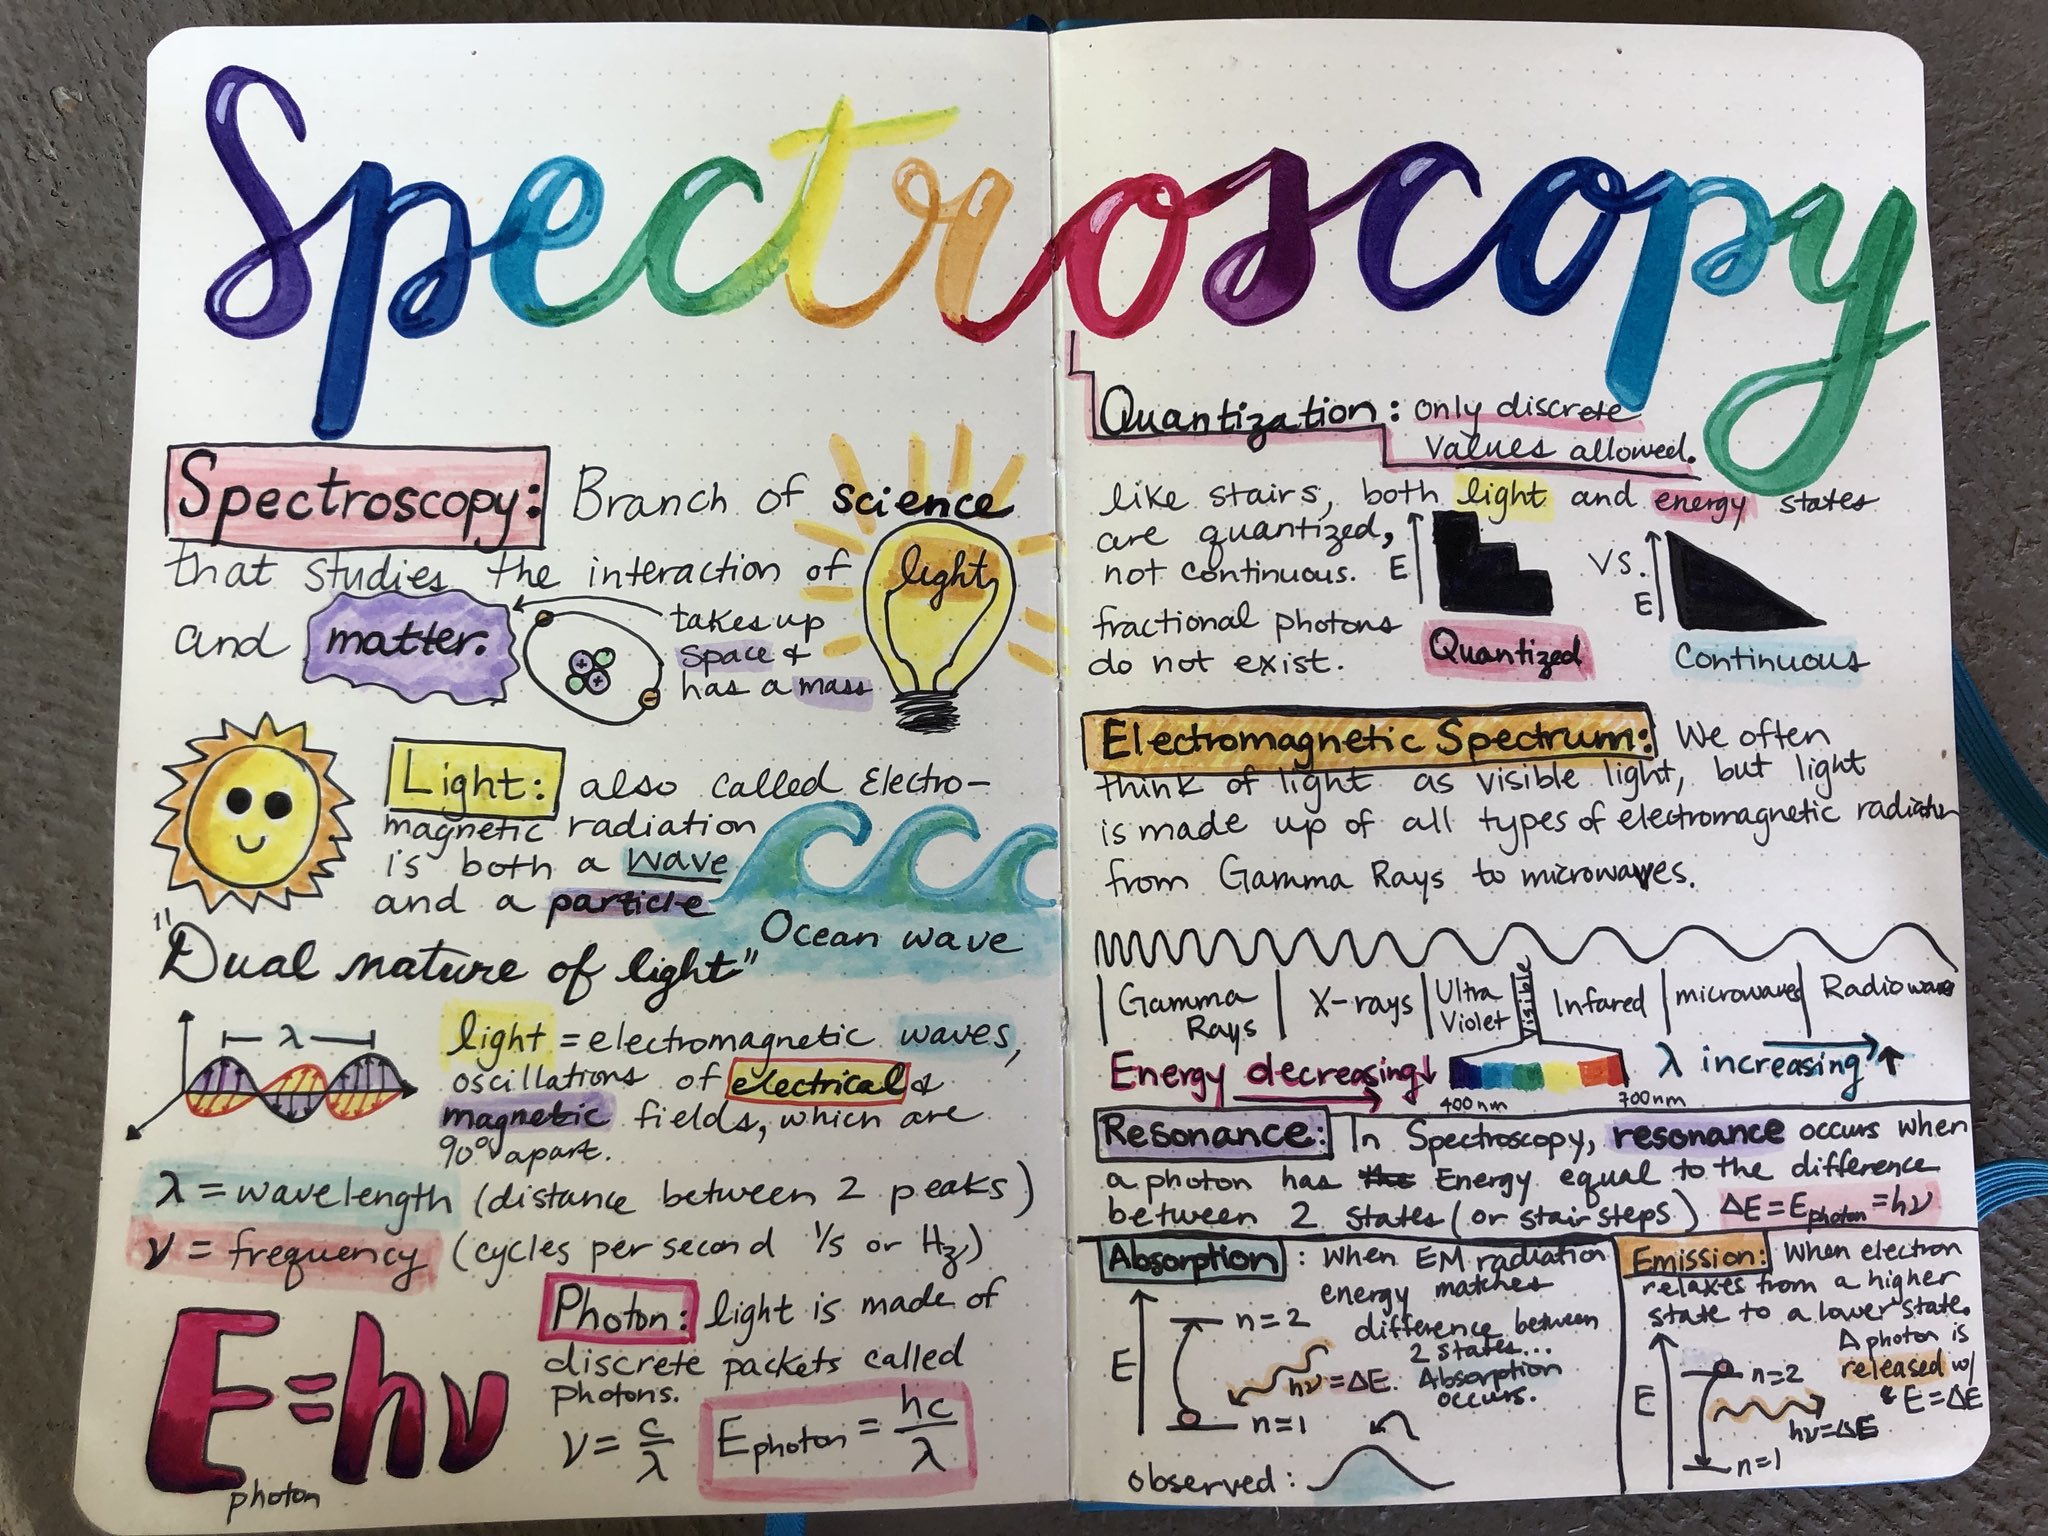 Spectroscopy
Spectroscopy: Branch of science
that studies the interaction of light
and matter.
takes up
space &
has a mass
Light: also called Electro-
magnetic radiation
is both a wave
and a particle
Ocean wave
"Dual nature of light"
λ
light = electromagnetic waves,
oscillations of electrical &
magnetic fields, which are
90° apart.
λ = wavelength (distance between 2 peaks)
ν = frequency (cycles per second 1/s or Hz)
E photon = hν
Photon: light is made of
discrete packets called
photons.
ν = c/λ
E photon = hc/λ
Quantization: only discrete
values allowed.
like stairs, both light and energy states
are quantized,
not continuous.
fractional photons
do not exist.
E
Quantized
VS.
E
Continuous
Electromagnetic Spectrum: We often
think of light as visible light, but light
is made up of all types of electromagnetic radiation
from Gamma Rays to microwaves.
Gamma Rays
X-rays
Ultra Violet
Visible
Infared
microwaves
Radiowaves
Energy decreasing↓
400nm
700nm
λ increasing ↑
Resonance: In Spectroscopy, resonance occurs when
a photon has Energy equal to the difference
between 2 states (or stair steps) ΔE = E photon = hν
Absorption: When EM radiation
energy matches
difference between
2 states...
Absorption
occurs.
E
n=2
hν=ΔE.
n=1
observed:
Emission: When electron
relaxes from a higher
state to a lower state.
A photon is
released w/
E=ΔE
E
n=2
hν=ΔE
n=1